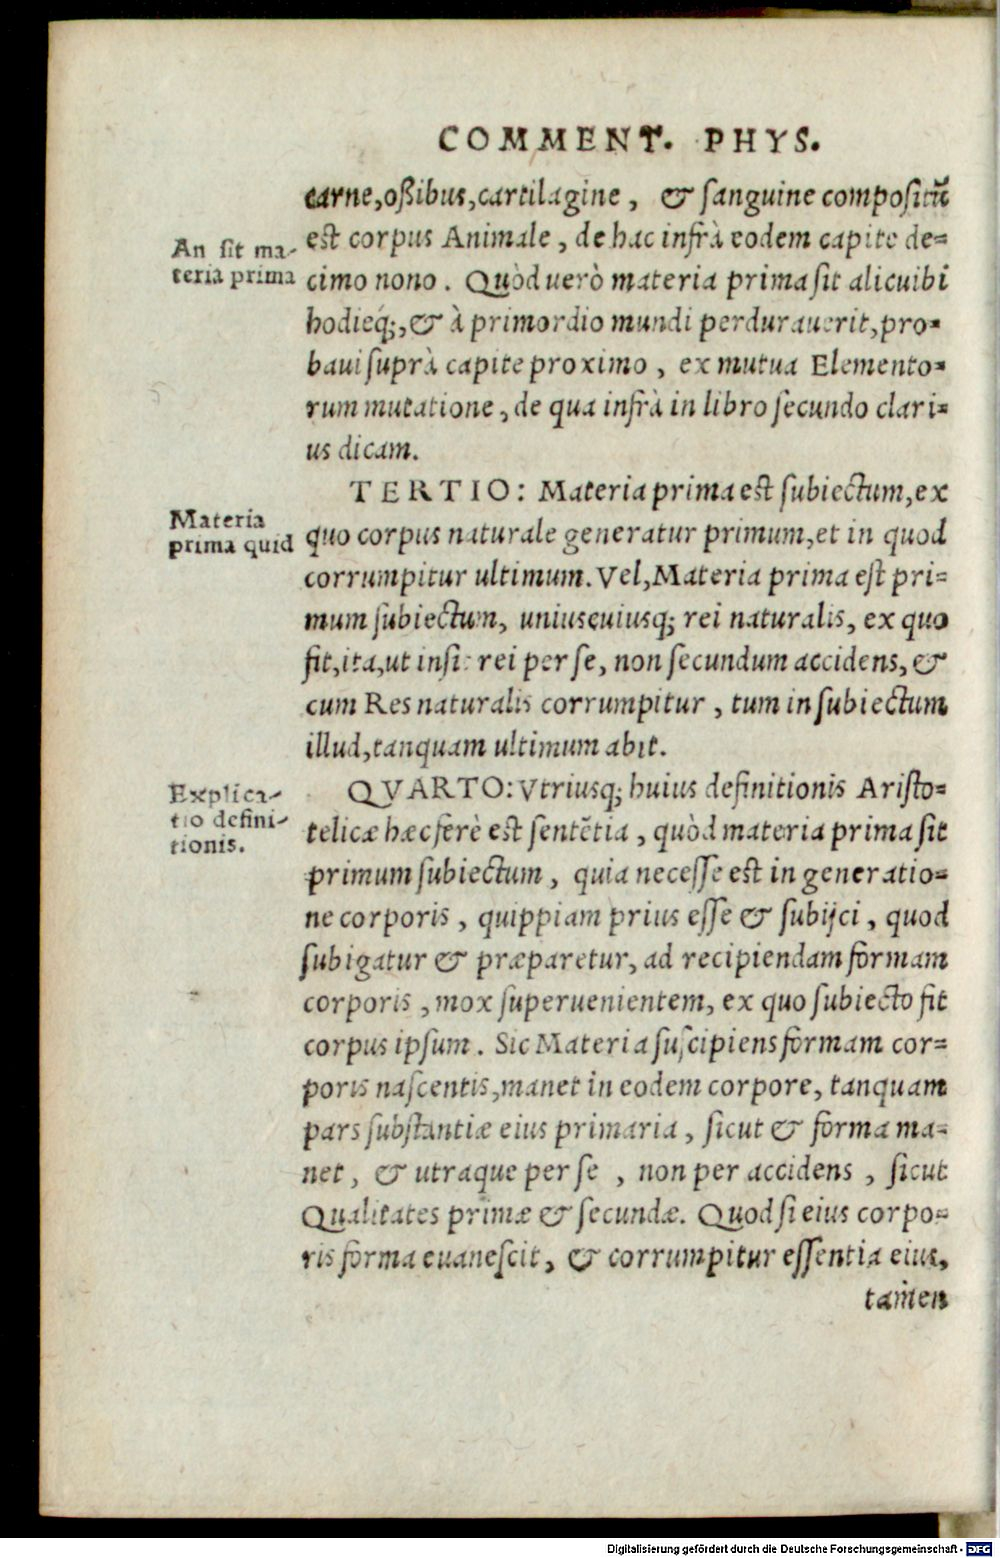 COMMENT. PHYS.
carne, oßibus, cartilagine, & sanguine compositū
An sit ma-
teria prima
est corpus Animale, de hac infrà eodem capite de=
cimo nono. Quòd uerò materia prima sit alicuibi
hodieq́;, & à primordio mundi perdurauerit, pro=
baui suprà capite proximo, ex mutua Elemento=
rum mutatione, de qua infrà in libro secundo clari=
us dicam.
TERTIO: Materia prima est subiectum, ex
Materia
prima quid
quo corpus naturale generatur primum, et in quod
corrumpitur ultimum. Vel, Materia prima est pri=
mum subiectum, uniuscuiusq; rei naturalis, ex quo
fit, ita, ut insit rei per se, non secundum accidens, &
cum Res naturalis corrumpitur, tum in subiectum
illud, tanquam ultimum abit.
Explica-
tio defini-
tionis.
QVARTO: Vtriusq; huius definitionis Aristo=
telicæ hæc ferè est sentētia, quòd materia prima sit
primum subiectum, quia necesse est in generatio=
ne corporis, quippiam prius esse & subijci, quod
subigatur & præparetur, ad recipiendam formam
corporis, mox superuenientem, ex quo subiecto fit
corpus ipsum. Sic Materia suscipiens formam cor=
poris nascentis, manet in eodem corpore, tanquam
pars substantiæ eius primaria, sicut & forma ma=
net, & utraque per se, non per accidens, sicut
Qualitates primæ & secundæ. Quod si eius corpo=
ris forma euanescit, & corrumpitur essentia eius,
tamen
Digitalisierung gefördert durch die Deutsche Forschungsgemeinschaft - DFG